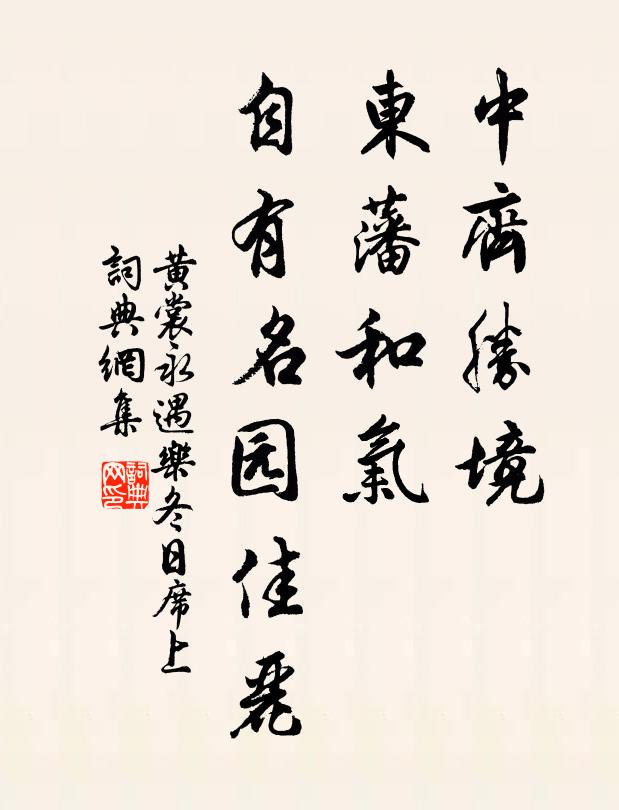 中齊勝境
東藩和氣
自有名园佳麗
黃裳永遇樂冬日席上
詞典網集
詞典網印